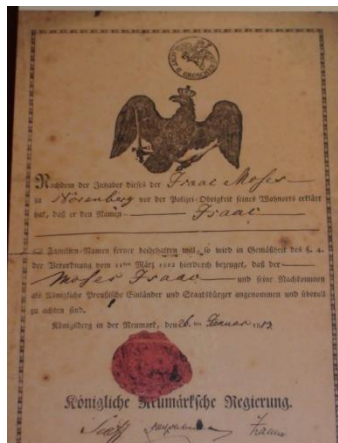 Nachdem der Inhaber dieses der Isaac Moses
zu vor der Polizei-Obrigkeit seines Wohnorts erklärt
hat, daß er den Namen Isaac
als Familien-Namen ferner beibehalten will, so wird in Gemäßheit des §. 4.
der Verordnung vom 11ten März 1812 hierdurch bezeuget, daß der
Moses Isaac und seine Nachkommen
als Königliche Preußische Einländer und Staatsbürger angenommen und überall
zu achten sind.
Königsberg in der Neumark, den
Königliche Neumärksche Regierung.